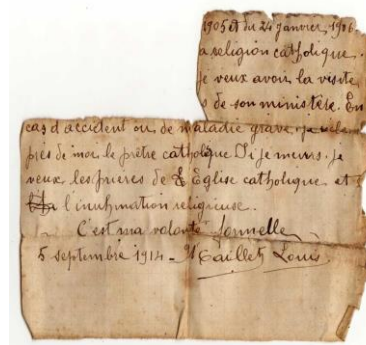 1905 et du 24 janvier 1906
a religion catholique.
Je veux avoir la visite
s de son ministère. En
cas d'accident ou de maladie grave, je
près de moi le prêtre catholique Si je meurs. je
veux les prières de l'Eglise catholique et
l'inhumation religieuse.
C'est ma volonté formelle
5 septembre 1914 - Taillet Louis